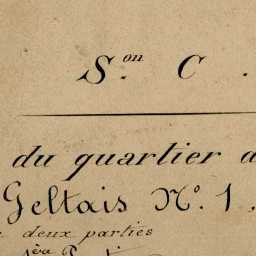 S.on C.
du quartier d
Geltais N.o 1,
deux parties
1ère